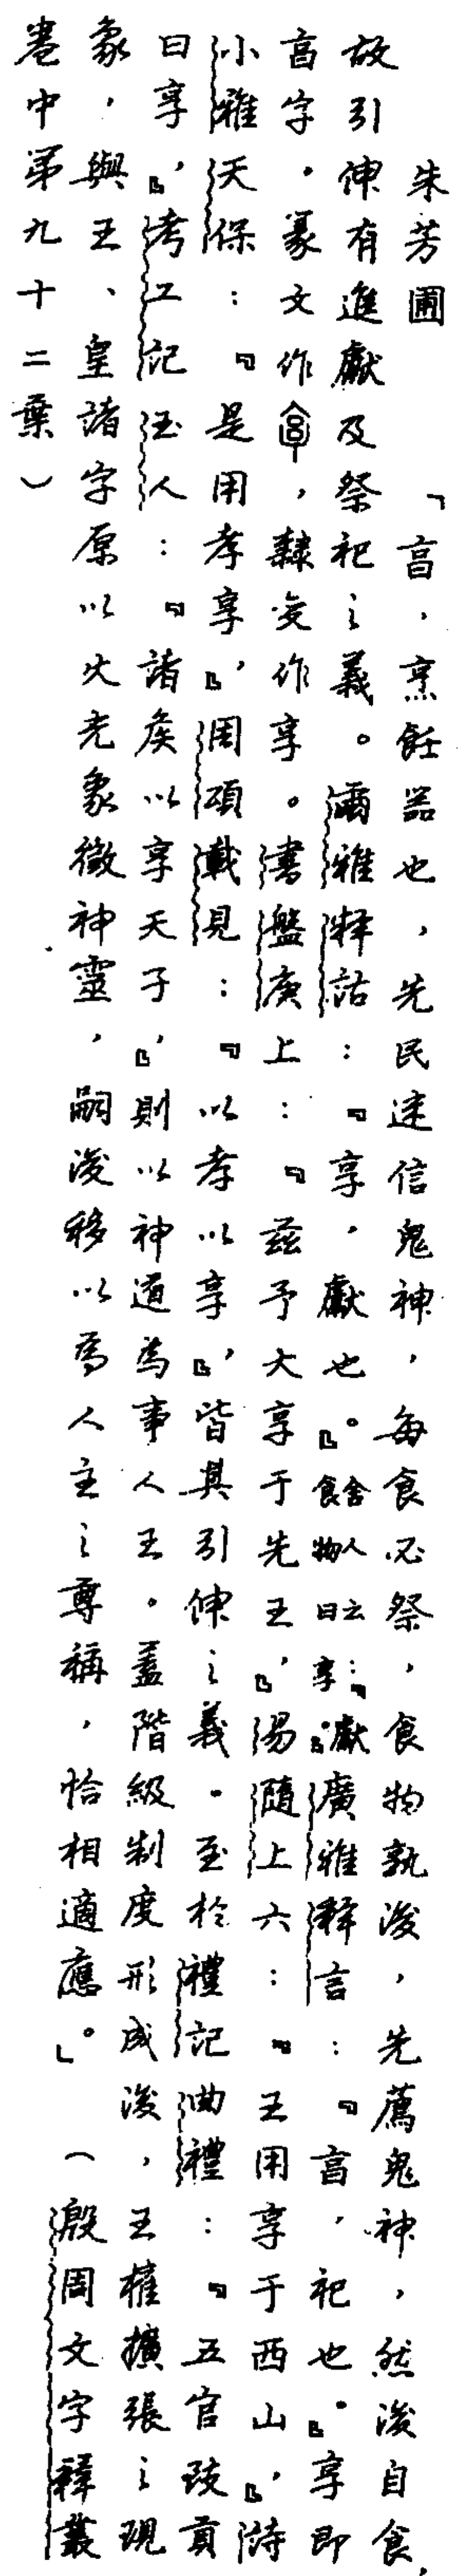 朱芳圃　「亯，烹飪器也，先民迷信鬼神，每食必祭，食物孰後，先薦鬼神，然後自食，
故引伸有進獻及祭祀之義。爾雅釋詁：『享，獻也。』舍人云：『獻食物曰享。』廣雅釋言：『亯，祀也。』享即
亯字。篆文作，隸变作享。書盤庚上：『茲予大享于先王』，易隨上六：『王用享于西山』，詩
小雅天保：『是用孝享』，周頌載見：『以孝以享』，皆其引伸之義。至於禮記曲禮：『五官致貢
曰享』，考工記玉人：『諸侯以享天子』，則以神道為事人王。蓋階級制度形成後，王權擴張之現
象，與王、皇諸字原以火光象徵神靈，嗣後移以為人主之尊稱，恰相適應。」（殷周文字釋叢
卷中第九十二葉）